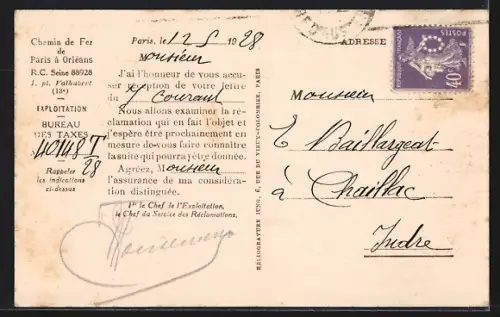 Chemin de Fer
de
Paris à Orléans
R.C. Seine 88928
1, pl. Valhubert
(13e)
EXPLOITATION
BUREAU
DES TAXES
Rappeler
les indications
ci-dessus
28
Paris, le 12 5 1928
Monsieur
J'ai l'honneur de vous accu-
ser réception de votre lettre
du 7 Courant
Nous allons examiner la ré-
clamation qui en fait l'objet et
j'espère être prochainement en
mesure de vous faire connaître
la suite qui pourra y être donnée.
Agréez, Monsieur
l'assurance de ma considéra-
tion distinguée.
Pr le Chef de l'Exploitation,
le Chef du Service des Réclamations,
HÉLIOGRAVURE JUNG, 6, RUE DU VIEUX-COLOMBIER, PARIS
ADRESSE
REPUBLIQUE FRANÇAISE
40c
Monsieur
E Baillargeat
à Chaillac
Indre